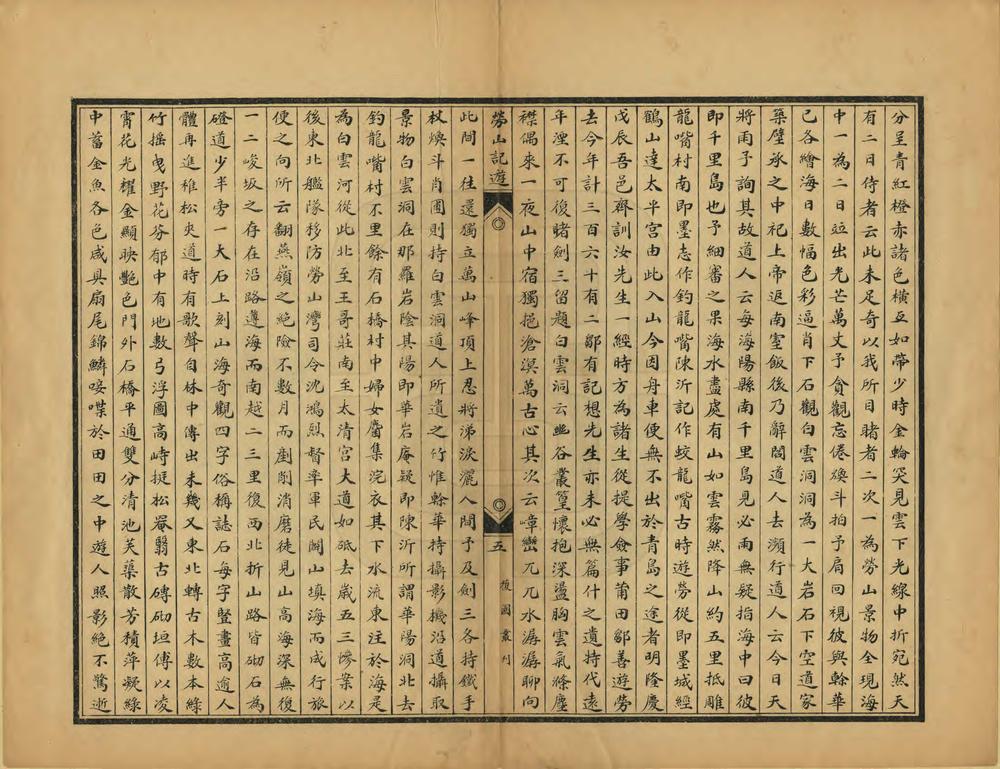 分呈青紅橙赤諸色橫亙如帶少時金輪突見雲下光線中折宛然天
有二日侍者云此未足奇以我所目睹者二次一為勞山景物全現海
中一為二日竝出光芒萬丈予貪觀忘倦煥斗拍予肩回視彼與翰華
已各繪海日數幅色彩逼肖下石觀白雲洞洞為一大岩石下空道家
築壁承之中祀上帝返南室飯後乃辭闊道人去瀕行道人云今日天
將雨予詢其故道人云每海陽縣南千里島見必雨無疑指海中曰彼
即千里島也予細審之果海水盡處有山如雲霧然降山約五里抵雕
龍嘴村南即墨志作釣龍嘴陳沂記作蛟龍嘴古時遊勞從即墨城經
鶴山達太平宮由此入山今因舟車便無不出於青島之途者明隆慶
戊辰吾邑齊訓汝先生一經時方為諸生從提學僉事莆田鄒善遊勞
去今年計三百六十有二鄒有記想先生亦未必無篇什之遺特代遠
年湮不可復睹劍三留題白雲洞云幽谷叢篁懷抱深盪胸雲氣滌塵
襟偶來一夜山中宿獨挹滄溟萬古心其次云嶂巒兀兀水潺潺聊向
勞山記遊
五
復園叢刊
此間一往還獨立萬山峰頂上忍將涕淚灑人間予及劍三各持鐵手
杖煥斗肖圃則持白雲洞道人所遺之竹惟翰華持攝影機沿道攝取
景物白雲洞在那羅岩陰其陽即華岩庵疑即陳沂所謂華陽洞北去
釣龍嘴村不里餘有石橋村中婦女麕集浣衣其下水流東注於海是
為白雲河從此北至王哥莊南至太清宮大道如砥去歲五三慘案以
後東北艦隊移防勞山灣司令沈鴻烈督率軍民闢山填海而成行旅
便之向所云翻燕嶺之絕險不數月而剷削消磨徒見山高海深無復
一二峻坂之存在沿路遵海而南越二三里復西北折山路皆砌石為
磴道少半旁一大石上刻山海奇觀四字俗稱誌石每字豎畫高逾人
體再進稚松夾道時有歌聲自林中傳出未幾又東北轉古木數本綠
竹搖曳野花芬郁中有地數弓浮圖高峙挺松巖翳古磚砌垣傅以凌
霄花光耀金顯映艷色門外石橋平通雙分清池芙蕖散芳積萍凝綠
中蓄金魚各色咸具扇尾錦鱗唼喋於田田之中遊人照影絕不驚逝